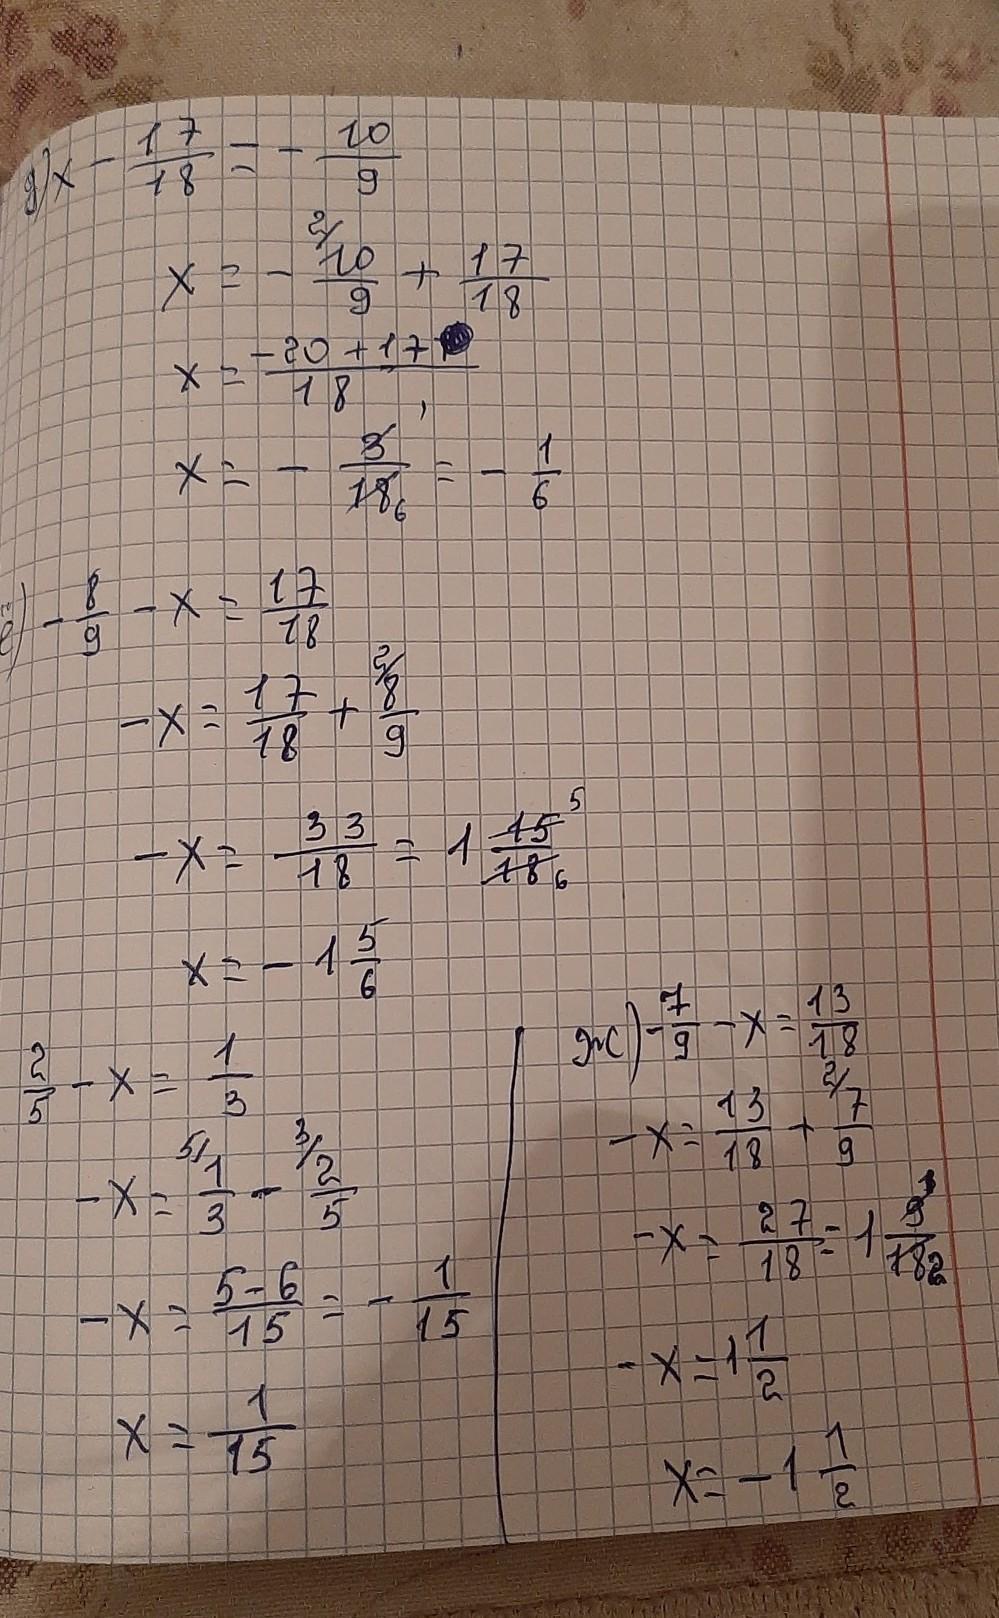 д) x - 17/18 = - 10/9
x = - 2/ 10/9 + 17/18
x = -20+17/18
x = - 3/18 6 = - 1/6
ё) - 8/9 - x = 17/18
-x = 17/18 + 2/ 8/9
-x = 33/18 = 1 15/18 5 6
x = - 1 5/6
2/5 - x = 1/3
-x = 5/ 1/3 - 3/ 2/5
-x = 5-6/15 = - 1/15
x = 1/15
ж) - 7/9 - x = 13/18
-x = 13/18 + 2/ 7/9
-x = 27/18 = 1 9/18 1 2
-x = 1 1/2
x = - 1 1/2